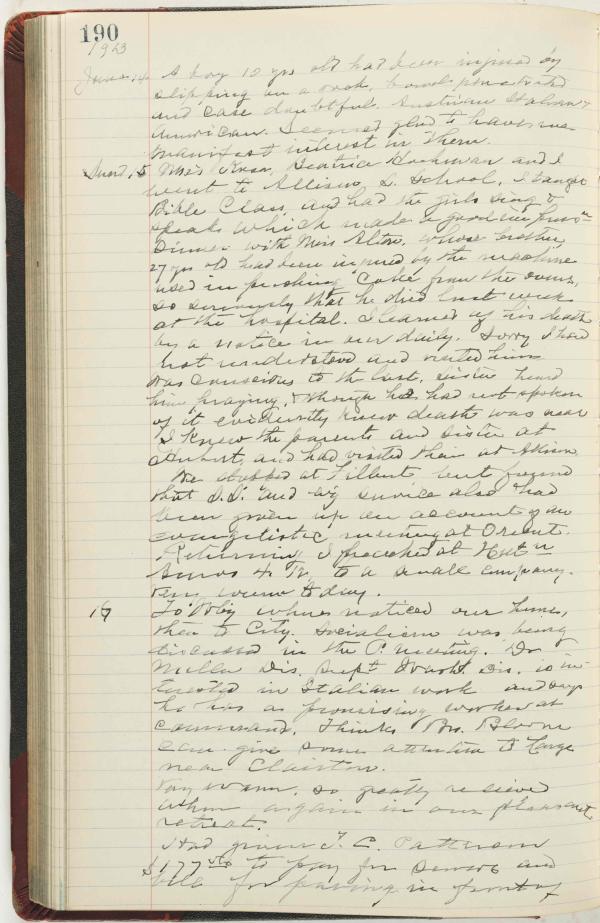 190
1923
June 14 A boy 12 yrs old had been injured by
slipping on a rock, bowel penetrated
and case doubtful. Austrian Italian &
American. Seemed glad to have me
manifest interest in them.
Sund. 15 Mrs Knox, Beatrice and I
went to Allison S. School, I taught
Bible Class, and had the girls sing &
speak which made a good
Dinner with Miss Alton, whose brother
27 yrs old had been injured by the machine
used in pushing Coke from the ovens,
so seriously that he died last week
at the hospital. I learned of his death
by a notice in our daily. Sorry I had
not understood and visited him
Was conscious to the last, sister heard
him praying, & though he had not spoken
of it evidently knew death was near
I knew the parents and sister at
and had visited them at Allison
We stopped at Filbert but found
that S.S. and service also had
been given up on account of an
evangelistic meeting at Orient.
Returning I preached at
4 to a small company.
Very warm today.
16 To where noticed our
then to City. Socialism was being
discussed in the P. meeting. Dr
Miller Dis. Supt Wash. Dis. is in-
terested in Italian work and says
he has a promising worker at
command. Thinks Bro.
can give some attention to
near Clairton.
Very warm, so greatly relieved
when again in our pleasant
retreat.
Had given T. C. Patterson
$177 to pay for sewer and
bill for paving in front of